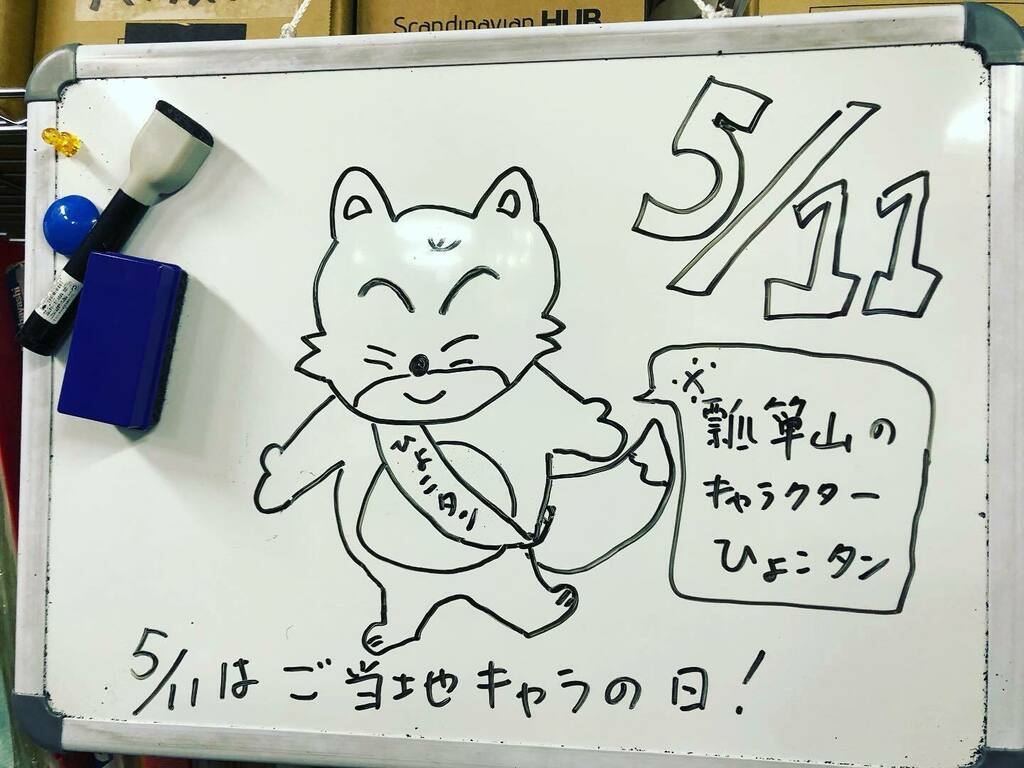 Scandinavian HUB
5/11
※
瓢箪山の
キャラクター
ひょこタン
ひょこタン
5/11はご当地キャラの日!